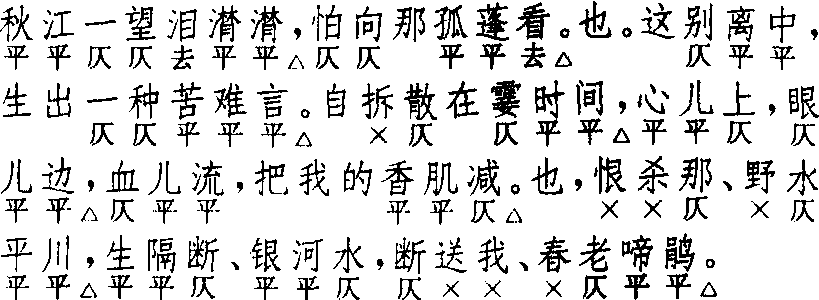 秋江一望泪潸潸，怕向那孤蓬看。也。这别离中，
平 平 仄 仄 去 平 平 △ 仄 仄 平 平 去 △ 仄 平 平
生出一种苦难言。自拆散在霎时间，心儿上，眼
仄 仄 平 平 平 △ × 仄 仄 平 平 △ 平 平 仄 仄
儿边，血儿流，把我的香肌减。也，恨杀那、野水
平 平 △ 仄 平 平 平 平 仄 △ × × 仄 × 仄
平川，生隔断、银河水，断送我、春老啼鹃。
平 平 △ 平 平 仄 平 平 仄 仄 × × × 仄 平 平 △